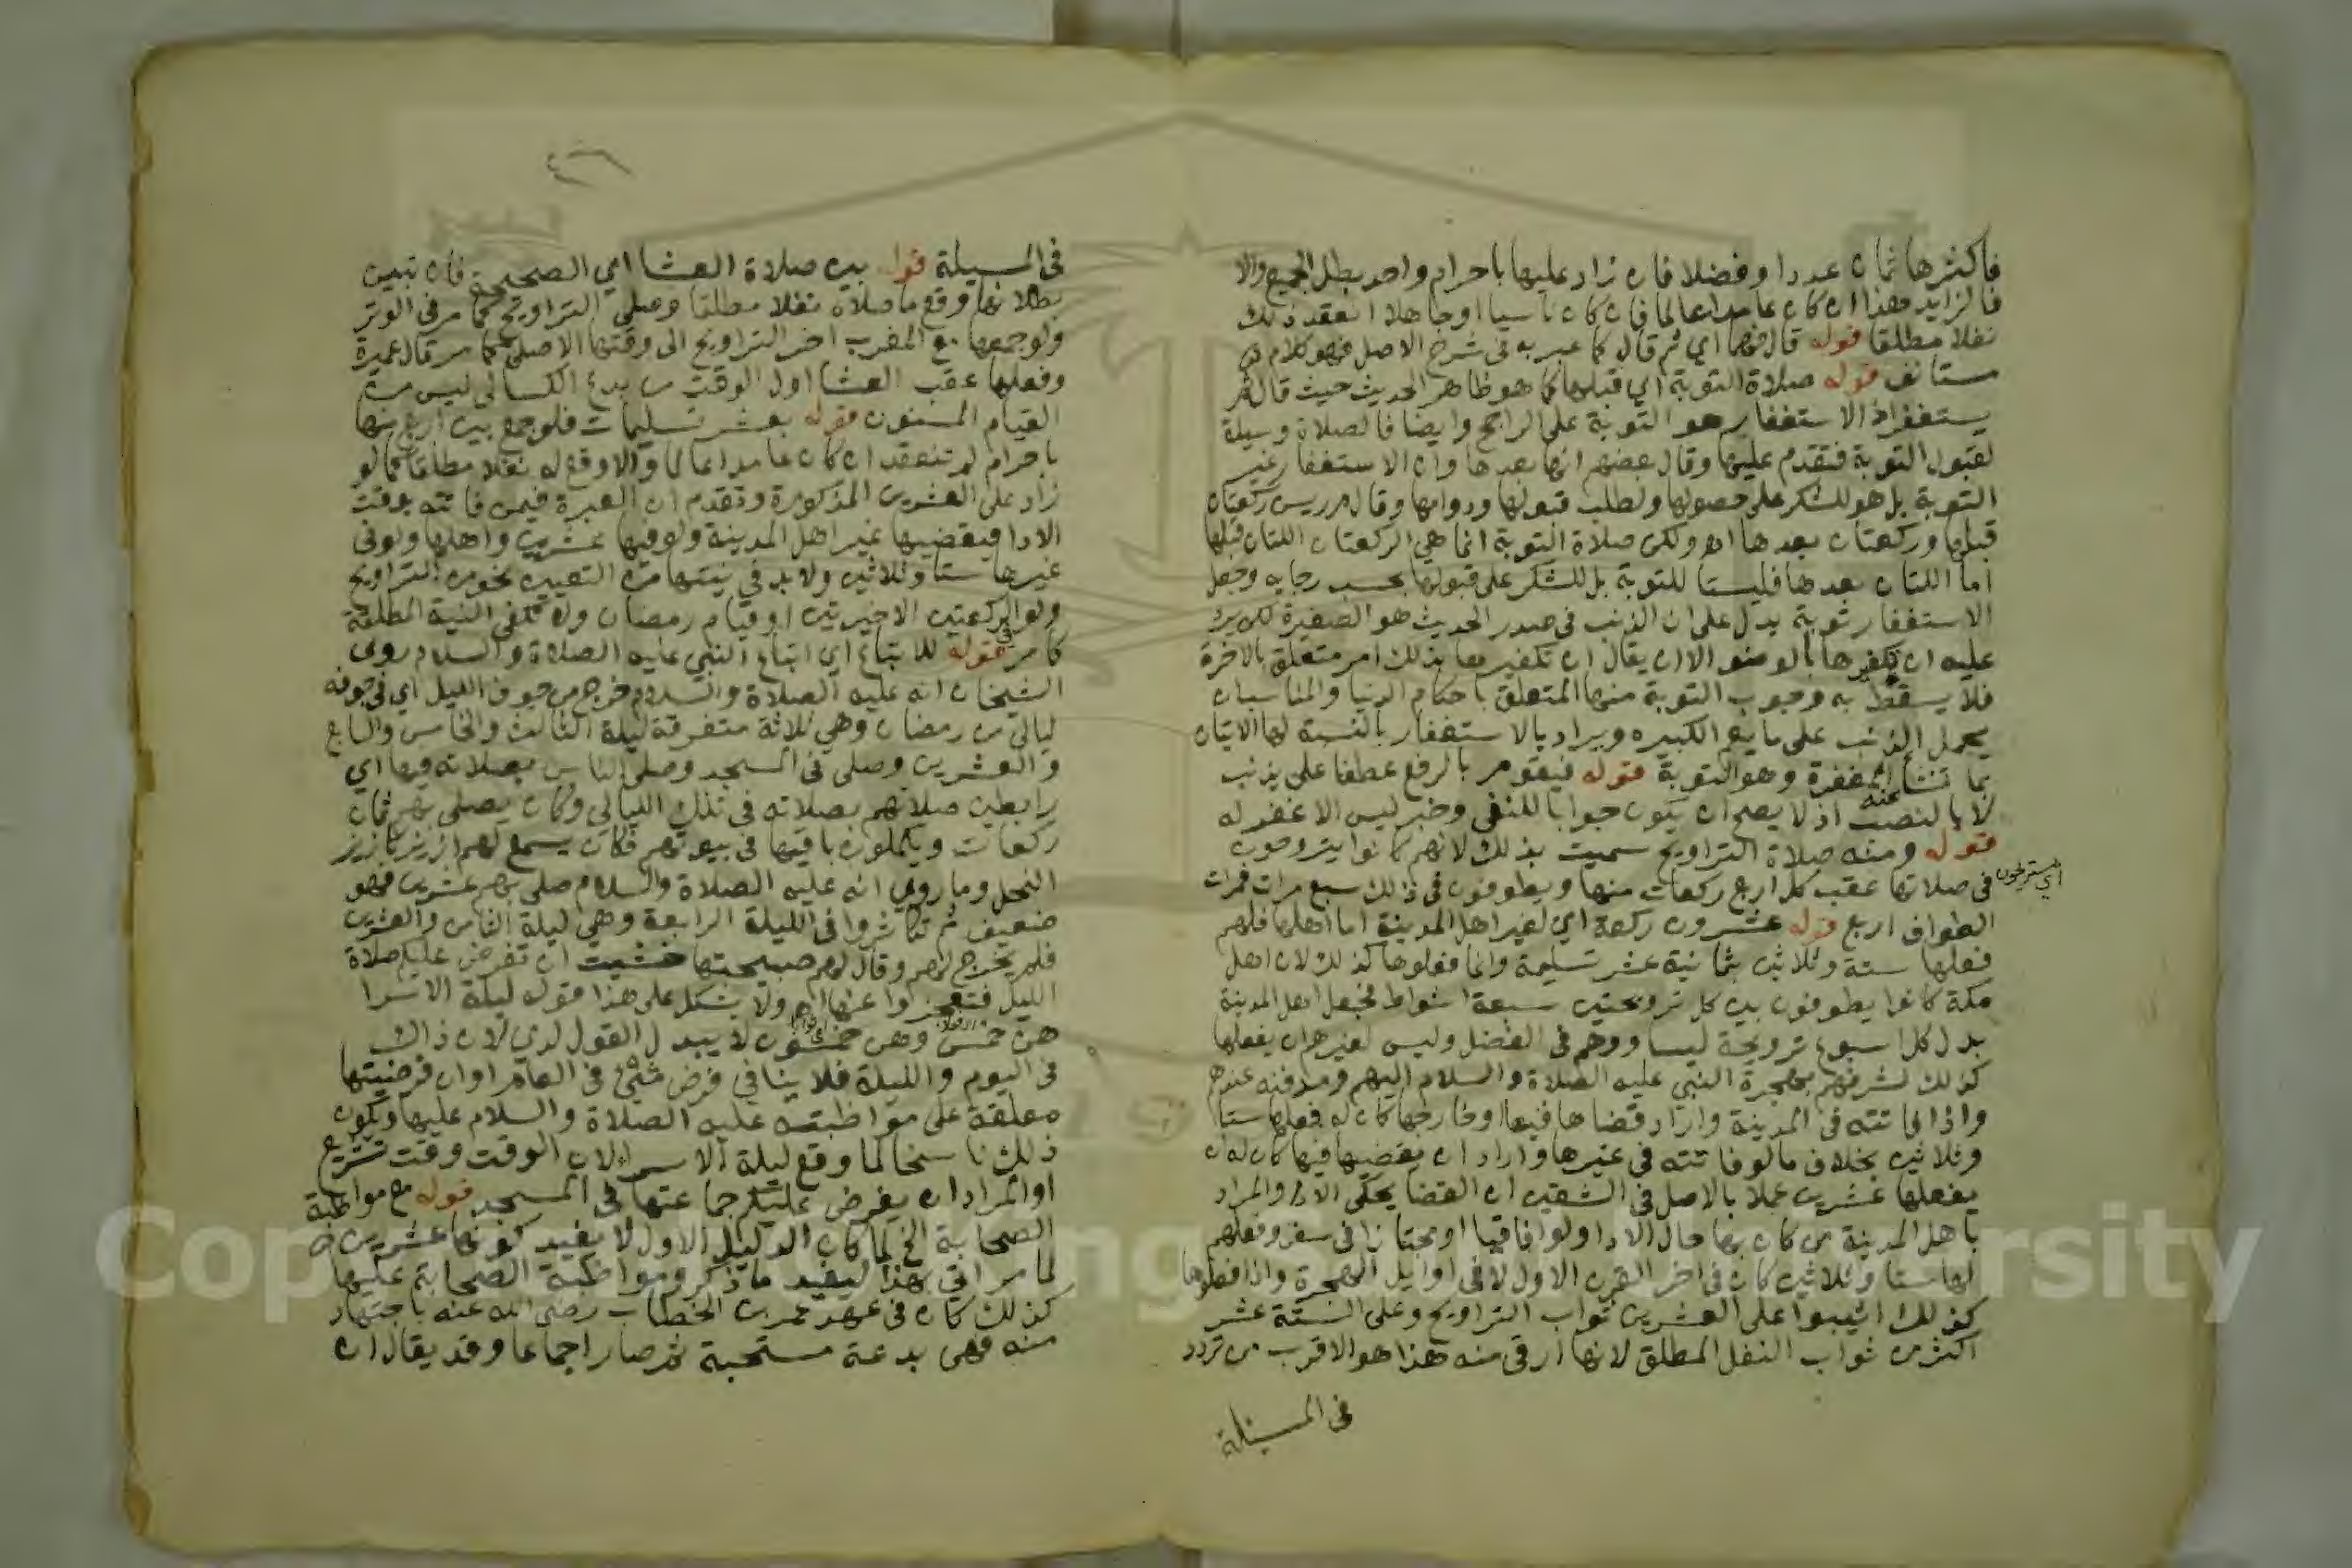 فاكثرها ثمان عددا وفضلا فان زاد عليها باحرام واحد بطل الجميع والا
فالزايد هذا ان كان عامدا عالما فان كان ناسيا او جاهلا انعقد ذلك
نفلا مطلقا قوله قال فيهما اي ثم قال كما عبر به في شرح الاصل فهو كلام
مستانف قوله صلاة التوبة اي قبلها كما هو ظاهر الحديث حيث قال ثم
يستغفر اذ الاستغفار هو التوبة على الراجح وايضا فالصلاة وسيلة
لقبول التوبة فتقدم عليها وقال بعضهم انها بعدها وان الاستغفار غير
التوبة بل هو للشكر على حصولها ولطلب قبولها ودوامها وقال م ر يسن ركعتان
قبلها وركعتان بعدها اه ولكن صلاة التوبة انما هي الركعتان اللتان قبلها
اما اللتان بعدها فليستا للتوبة بل للشكر على قبولها بحسب رجايه وجعل
الاستغفار توبة يدل على ان الذنب في صدر الحديث هو الصغيرة لكن يرد
عليه ان تكفيرها بالوضو الا ان يقال ان تكفيرها بذلك امر متعلق بالاخرة
فلا يسقط به وجوب التوبة منها المتعلق باحكام الدنيا والمناسب ان
يحمل الذنب على ما يعم الكبيره ويراد بالاستغفار بالنسبة لها الاتيان
بما تنشا عنه المغفرة وهو التوبة قوله فيقوم بالرفع عطفا على يذنب
لا بالنصب اذ لا يصح ان يكون جوابا للنفي وخبر ليس الا غفر له
قوله ومنه صلاة التراويح سميت بذلك لانهم كانوا يتروحون
اي يستريحون
في صلاتها عقب كل اربع ركعات منها ويطوفون في ذلك سبع مرات فمرات
الطواف اربع قوله عشرون ركعة اي لغير اهل المدينة اما اهلها فلهم
فعلها ستة وثلاثين بثمانية عشر تسليمة وانما فعلوها كذلك لان اهل
مكة كانوا يطوفون بين كل ترويحتين سبعة اشواط فجعل اهل المدينة
بدل كل اسبوع ترويحة ليساووهم في الفضل وليس لغيرهم ان يفعلها
كذلك لشرفهم بهجرة النبي عليه الصلاة والسلام اليهم ومدفنه عندهم
واذا فاتته في المدينة واراد قضاها فيها او خارجها كان له فعلها ستا
وثلاثين بخلاف ما لو فاتته في غيرها واراد ان يقضيها فيها كان له ان
يفعلها عشرين عملا بالاصل في الشقين ان القضا يحكي الادا والمراد
باهل المدينة من كان بها حال الادا ولو افاقيا او مجتازا في سفر وفعلهم
لها ستا وثلاثين كان في اخر القرن الاول لا في اوايل الهجرة واذا فعلوها
كذلك اثيبوا على العشرين ثواب التراويح وعلى الستة عشر
اكثر من ثواب النفل المطلق لانها ارقى منه هذا هو الاقرب من تردد
في المسيلة
في المسيلة قوله بين صلاة العشا اي الصحيحة فان تبين
بطلانها وقع ما صلاه نفلا مطلقا وصلى التراويح كما مر في الوتر
ولو جمعها مع المغرب اخر التراويح الى وقتها الاصلي كما مر قال عميرة
وفعلها عقب العشا اول الوقت من بدع الكسالى ليس من
القيام المسنون قوله بعشر تسليمات فلو جمع بين اربع منها
باحرام لم تنعقد ان كان عامدا عالما والا وقع له نفلا مطلقا كما لو
زاد على العشرين المذكورة وتقدم ان العبرة فيمن فاتته بوقت
الادا فيقضيها غير اهل المدينة ولو فيها عشرين واهلها ولو في
غيرها ستا وثلاثين ولا بد في نيتها من التعيين نحو من التراويح
ولو الركعتين الاخيرتين او قيام رمضان ولا تكفي النية المطلقة
كما مر قوله للاتباع اي اتباع النبي عليه الصلاة والسلام روى
الشيخان انه عليه الصلاة والسلام خرج من جوف الليل اي في جوفه
ليالي من رمضان وهي ثلاثة متفرقة ليلة الثالث والخامس والسابع
والعشرين وصلى في المسجد وصلى الناس بصلاته فيها اي
رابطين صلاتهم بصلاته في تلك الليالي وكان يصلي بهم ثمان
ركعات ويكملون باقيها في بيوتهم فكان يسمع لهم ازيز كازيز
النحل وما روي انه عليه الصلاة والسلام صلى بهم عشرين فهو
ضعيف ثم تكاثروا في الليلة الرابعة وهي ليلة الثامن والعشرين
فلم يخرج لهم وقال لهم صبيحتها خشيت ان تفرض عليكم صلاة
الليل فتعجزوا عنها اه ولا يشكل على هذا قوله ليلة الاسرا
هن خمس وهن خمسون لا يبدل القول لدي لان ذاك
في اليوم والليلة فلا ينافي فرض شي في العام او ان فرضيتها
معلقة على مواظبته عليه الصلاة والسلام عليها ويكون
ذلك ناسخا لما وقع ليلة الاسرا لان الوقت وقت تشريع
او المراد ان يفرض عليكم جماعتها في المسجد قوله مع مواظبة
الصحابة الخ لما كان الدليل الاول لا يفيد كونها عشرين
لما مر اتي بهذا ليفيد ما ذكر ومواظبة الصحابة عليها
كذلك كان في عهد عمر بن الخطاب رضي الله عنه باجتهاد
منه فهي بدعة مستحبة ثم صار اجماعا وقد يقال ان